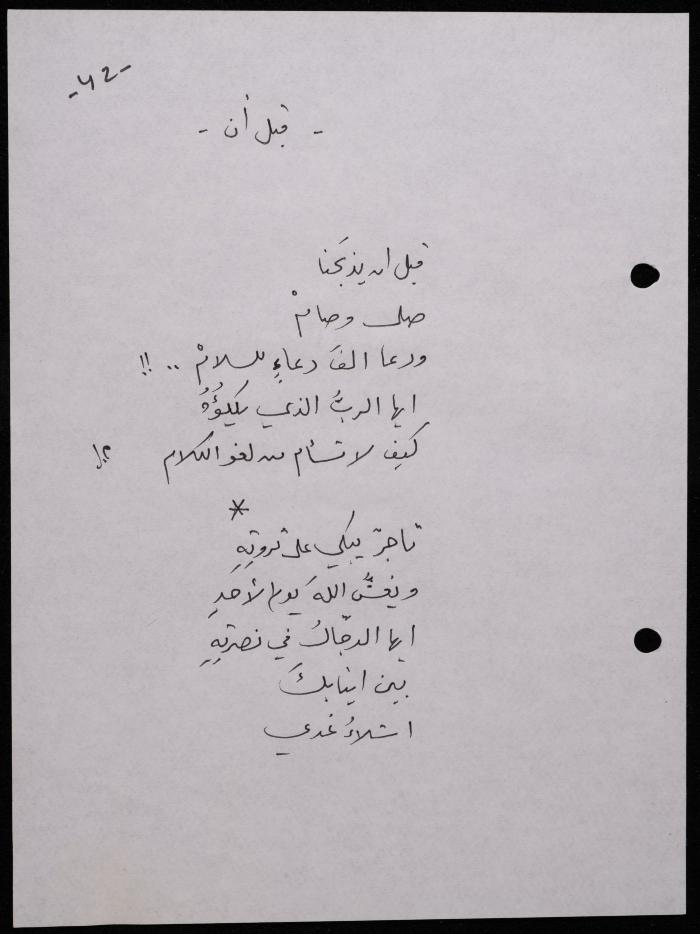 -42-
- قبل أن -
قبل ان يذبَحَنا
صلى وصامْ
ودعا الفَ دعاءٍ للسلامْ .. !!
ايها الربُّ الذي
كيف لا تسأم من لغو الكلام ؟!
*
تاجرٌ يبكي على ثروتِهِ
ويغشُّ اللهَ يوم الأحدِ
ايها الدجّالُ في نصرتِهِ
بين انيابكَ
اشلاءُ غدي